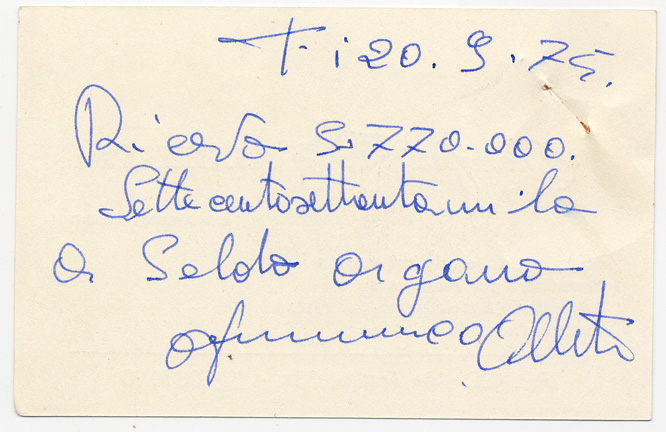 Fi 20.9.75.
Ricevo £. 770.000.
Settecentosettantamila
a Saldo organo